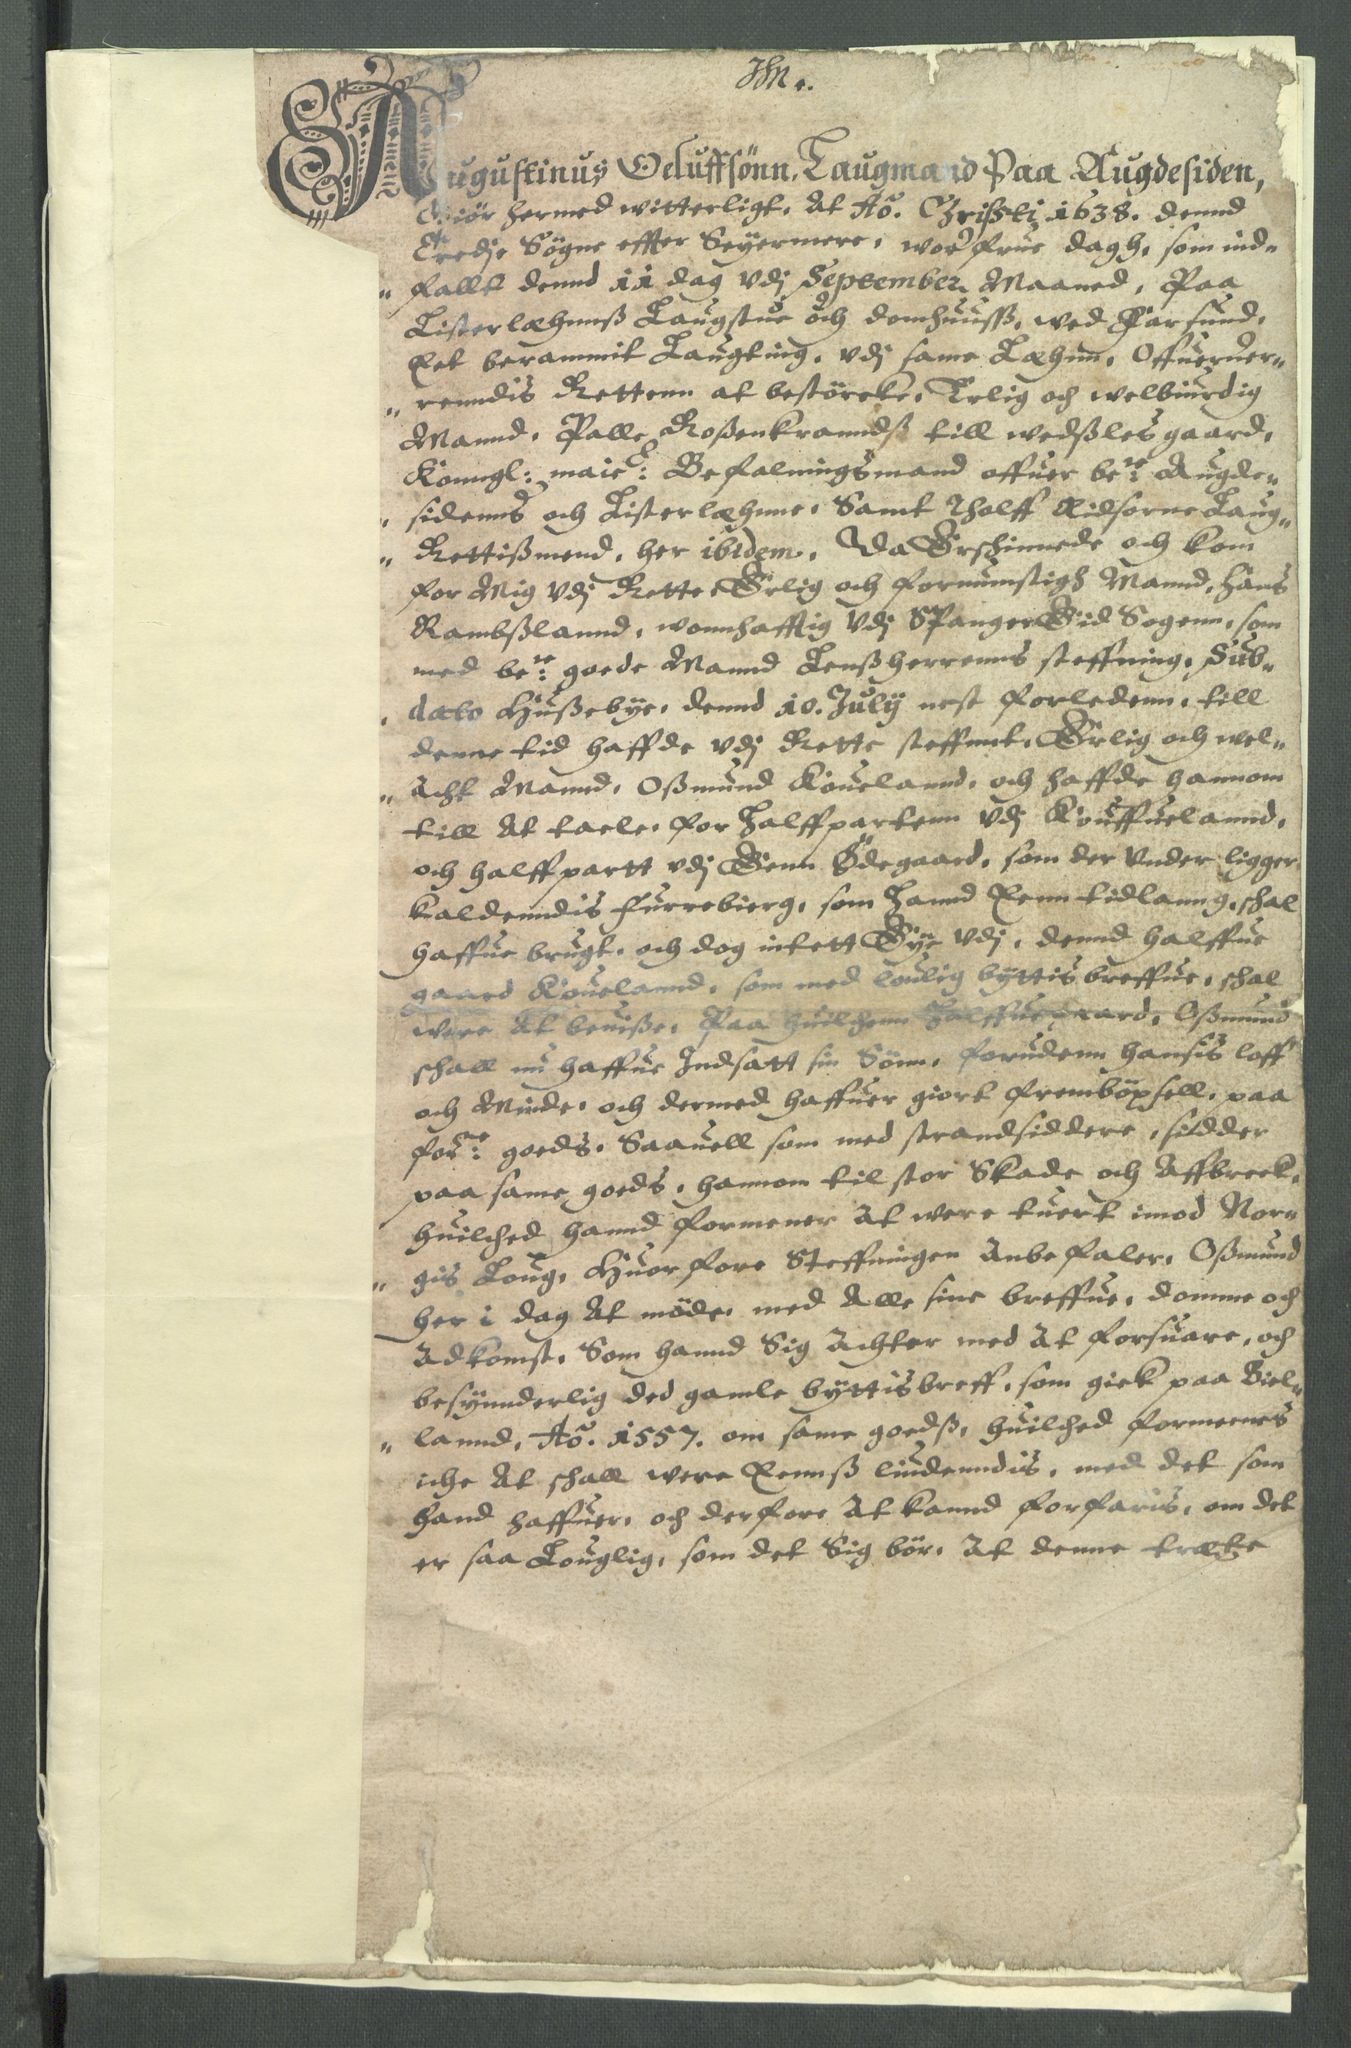 JHM.
Augustinus Oeluffsønn, Laugmand Paa Augdesiden,
Giør hermed witterligt, At Aō. Chrißti 1638. dennd
tredje Søgne effter Seyermere, wor frue dagh, som ind-
fallt dennd 11 dag vdj September Maaned, Paa
Listerlæhnnß Laugstue och domhuuß, wed Farsund,
Eet berammit Laugting, vdj same Læhnn, Offuerver-
renndis Rettenn at bestørcke, Erlig och welbiurdig
Mannd, Palle Roßenkranndß till wedßlesgaard,
Konngl: maiet: Befalningsmand offuer bete: Augde-
sidenns och Listerlæhnne, Samt Tholff Eidsorne Laug-
Rettißmend, her ibidem, Da Erschinnede och kom
for Mig vdj Rette Erlig och fornumstigh Mannd, Hans
Rambßlannd, wonnhafftig Vdj SPangerEid Sogenn, som
med bete: goede Mannd Lenßherrenns steffning, Sub-
dato Hußebye, dennd 10. July nest forledenn, till
denne tid haffde vdj Rette steffnnt, Erlig och wel-
Acht Mannd, Oßmund Kouelannd, och haffde hannom
till At taele, for halffpartenn vdj Kouffuelannd,
och halffpartt vdj Eenn Ødegaard, som der Vnder ligger
kaldenndis furrebierg, som hannd Eenn tidlanng, schal
haffue brugt, och dog intett Eye vdj, dennd halffue
gaard Kouelannd, som med louelig byttisbreffue, schal
were At beuiße, Paa huilchenn halffuegaard, Oßmund
schall nu haffue Indsatt sin Sønn, forudenn hansis loff
och Minde, och dermed haffuer giort frembøxsell, paa
forne: goeds, Saauell som med strandsiddere, sidder
paa same goeds, hannom til stor Skade och Affbreck,
huilched hannd formener At were tuert imod Nor-
gis Loug, Huorfore Steffningen Anbefaler, Oßmund
her i dag At møde, med Alle sine breffue, domme och
Adkomst, Som hannd Sig Achter med At forsuare, och
besynnderlig ded gamle byttisbreff, som giek paa Biel-
lannd, Aō. 1557. om same goedß, huilched formeenes
iche At schall were Eennß liudenndis, med det som
hand haffuer, och derfore At kannd forfaris, om det
er saa Louglig, som det Sig bør, At denne trætte